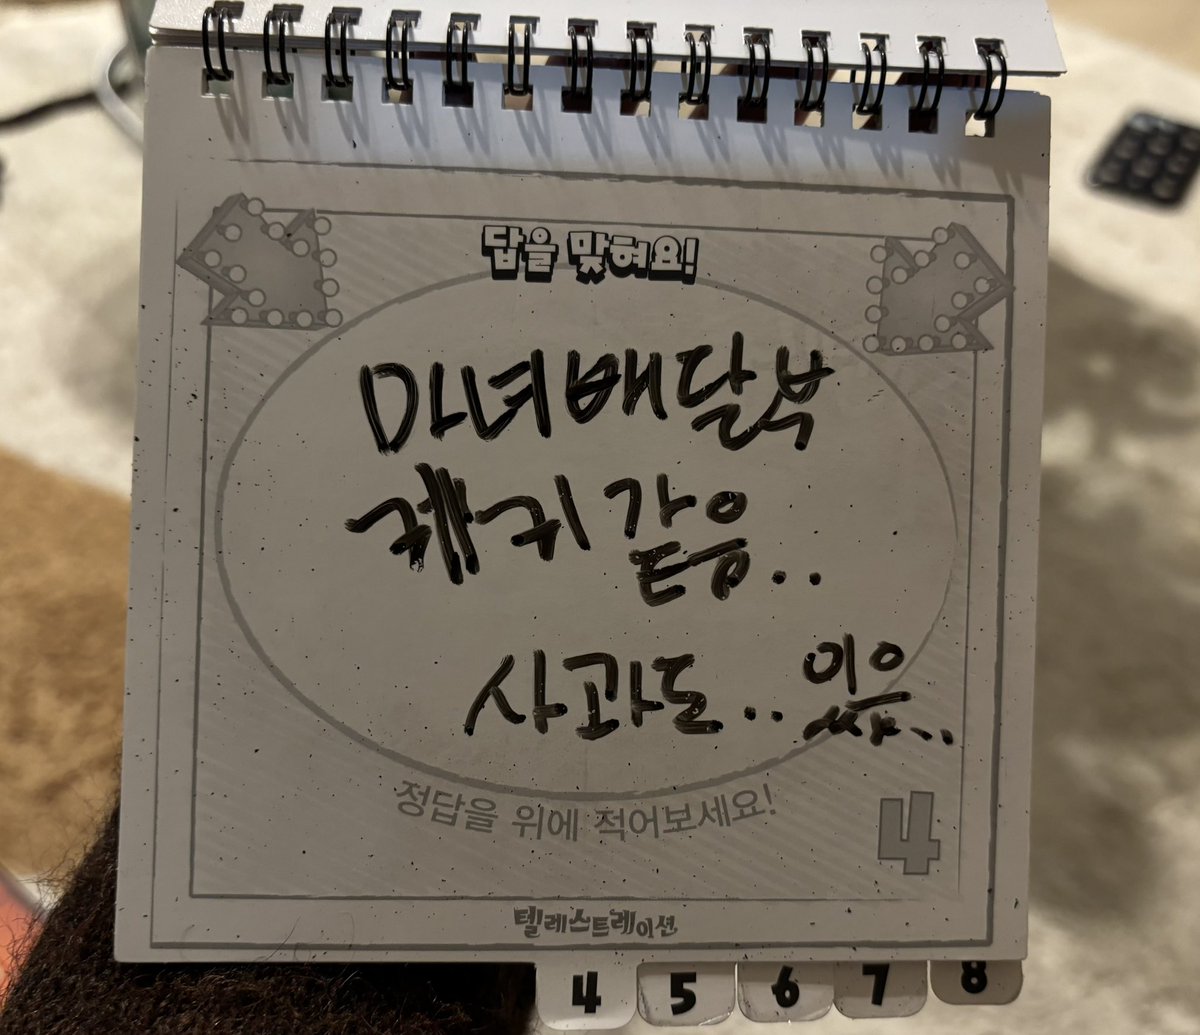 답을 맞혀요!
마녀배달부
케키 같음..
사과도.. 있음..
정답을 위에 적어보세요!
4
텔레스트레이션
4 5 6 7 8